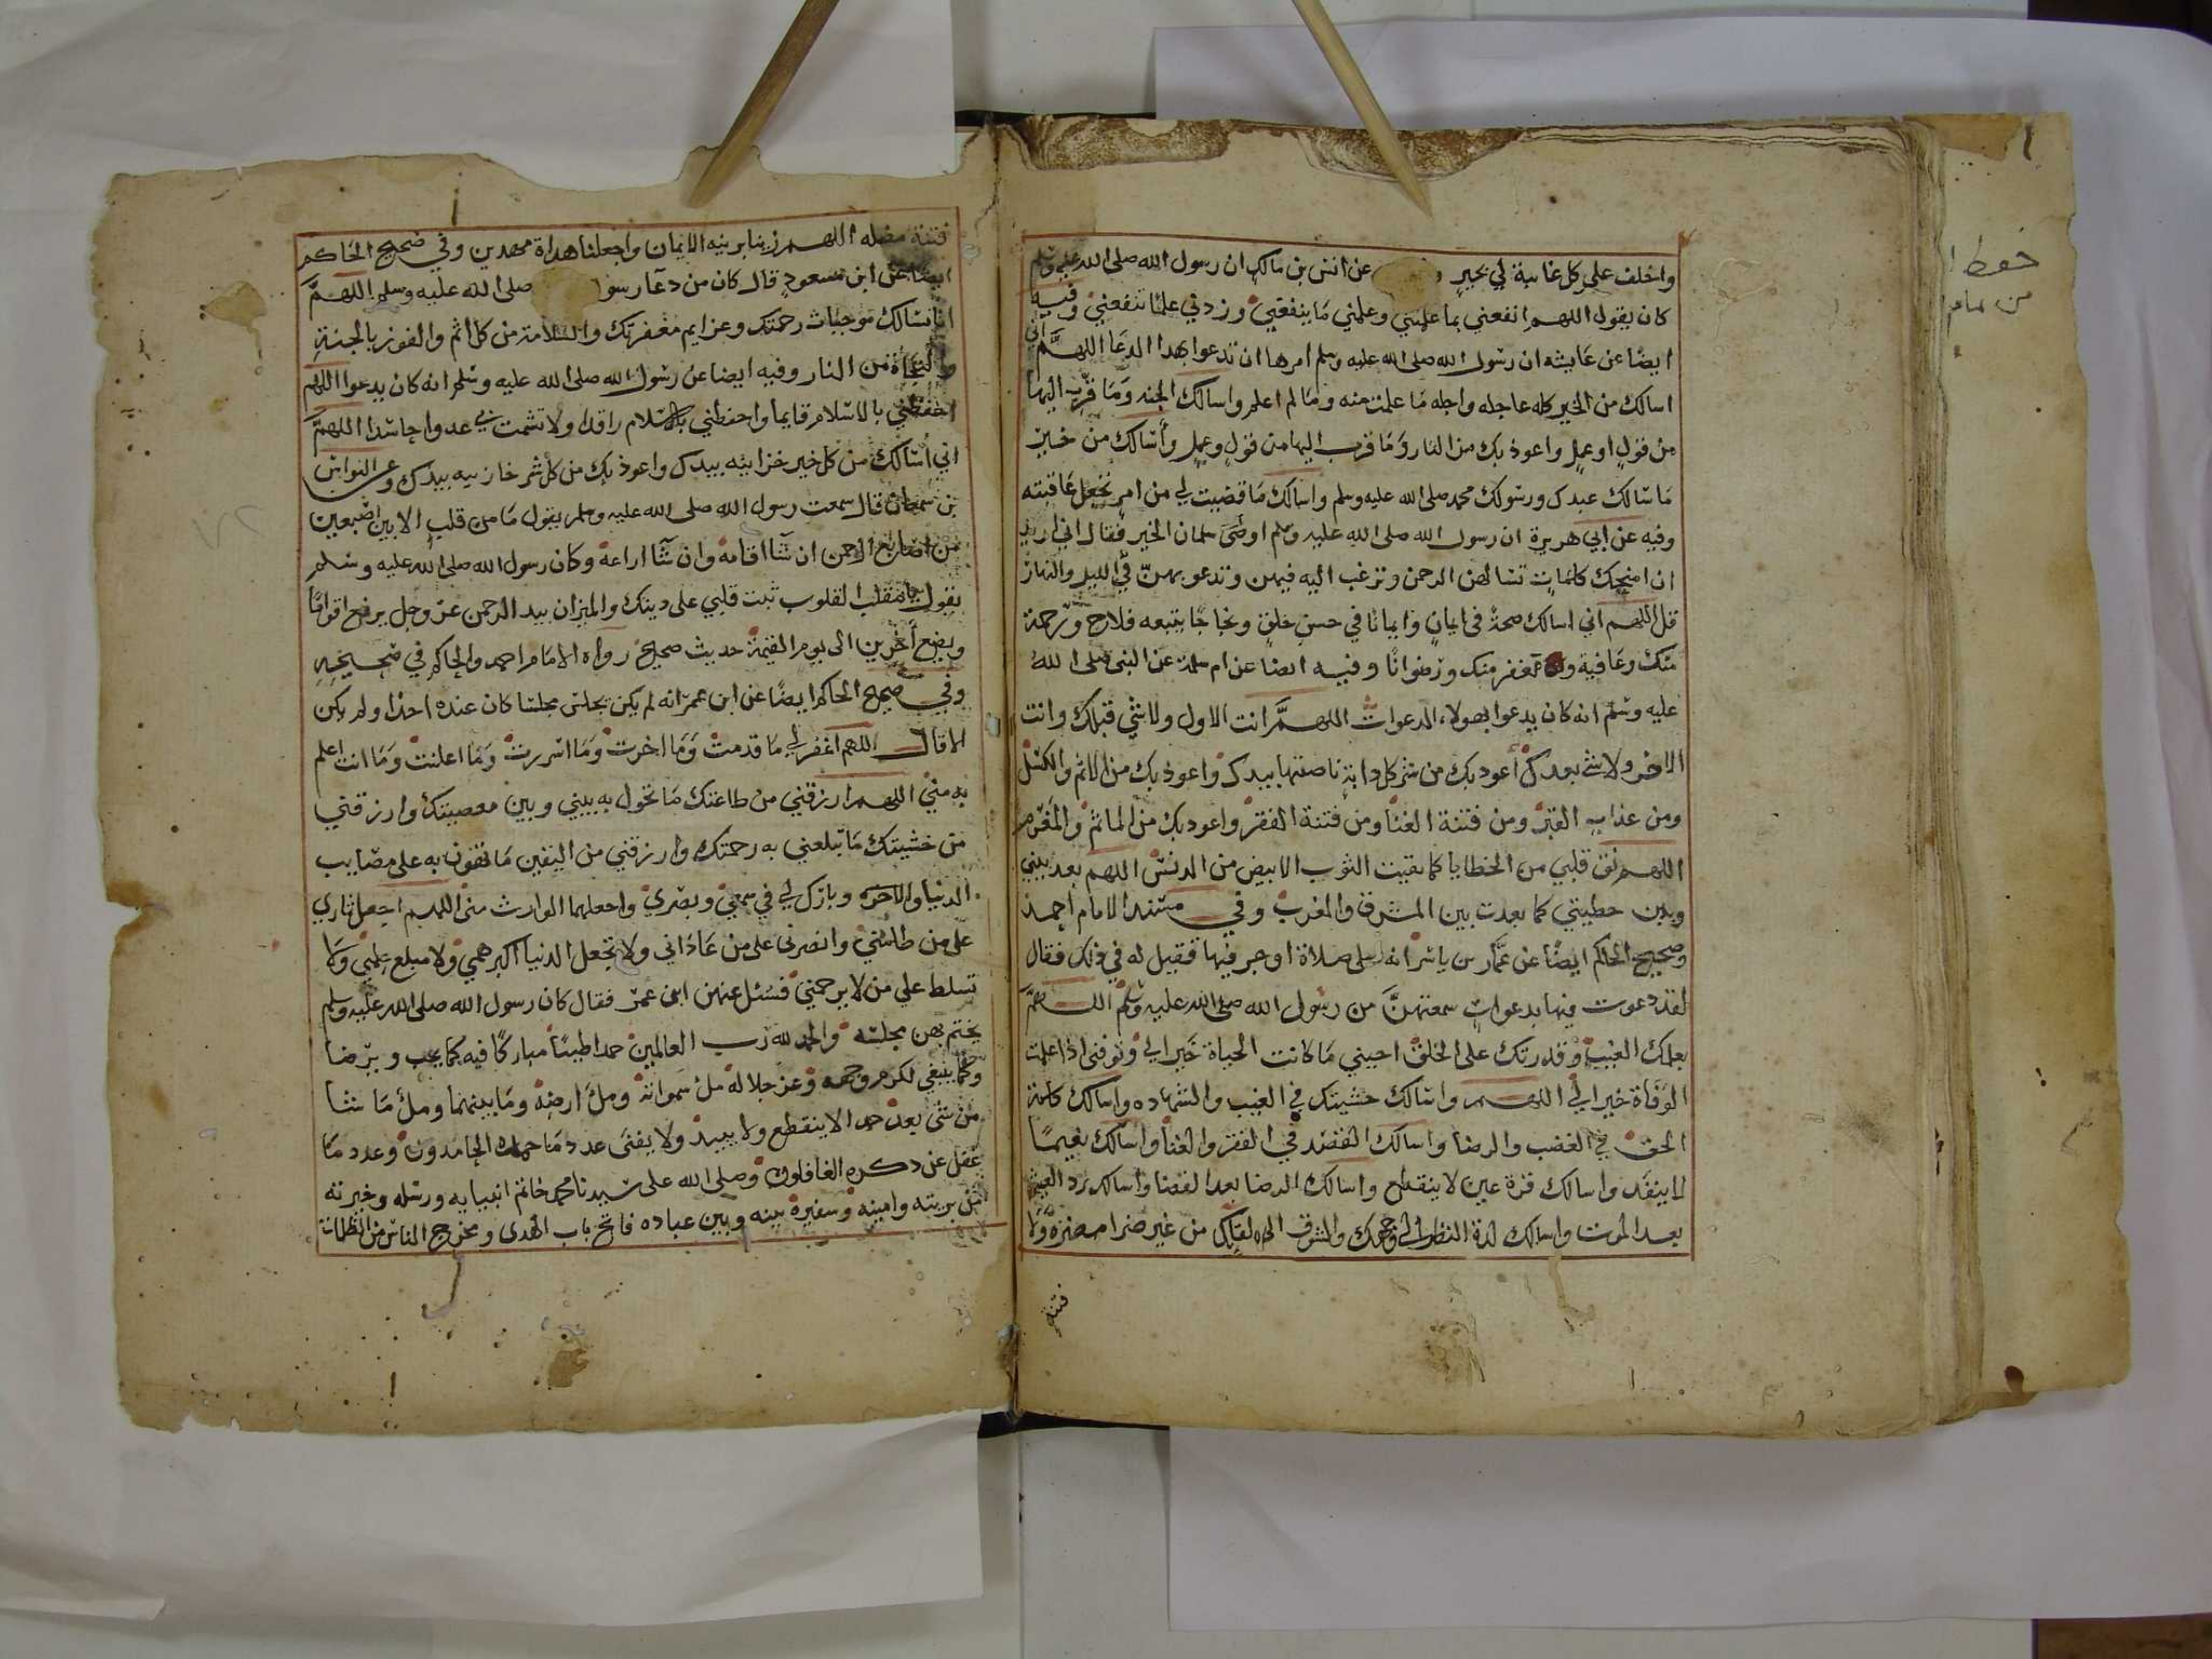 واخلف على كل غايبة لي بخير عن انس بن مالك ان رسول الله صلى الله عليه وسلم
كان يقول اللهم انفعني بما علمتني وعلمني ما ينفعني وزدني علما تنفعني وفيه
ايضا عن عايشه ان رسول الله صلى الله عليه وسلم امرها ان تدعوا بهدا الدعا اللهم اني
اسالك من الخير كله عاجله واجله ما علمت منه وما لم اعلم واسالك الجنه وما قرب اليها
من قول او عمل واعوذ بك من النار وما قرب اليها من قول وعمل وأسالك من خير
ما سالك عبدك ورسولك محمد صلى الله عليه وسلم واسالك ما قضيت لي من امر تجعل عاقبته
وفيه عن ابي هريرة ان رسول الله صلى الله عليه وسلم اوصى سلمان الخير فقال اني اريد
ان امنحك كلمات تسالهن الرحمن وترغب اليه فيهن وتدعو بهن في الليل والنهار
قل اللهم اني اسالك صحة في ايمان وايمانا في حسن خلق ونجاحا يتبعه فلاح ورحمة
منك وعافية ومغفر منك ورضوانا وفيه ايضا عن ام سلمة عن النبي صلى الله
عليه وسلم انه كان يدعوا بهولاء الدعوات اللهم انت الاول ولا شي قبلك وانت
الاخر ولا شي بعدك أعود بك من شر كل دابة ناصيتها بيدك واعوذ بك من الاثم والكسل
ومن عذاب القبر ومن فتنة الغنا ومن فتنة الفقر واعود بك من الماثم والمغرم
اللهم نق قلبي من الخطايا كما نقيت الثوب الابيض من الدنس اللهم بعد بيني
وبين خطيتي كما بعدت بين المشرق والمغرب وفي مسند الامام احمد
وصحيح الحاكم ايضا عن عمار بن ياسر انه صلى صلاة اوجز فيها فقيل له في ذلك فقال
لقد دعوت فيها بدعوات سمعتهن من رسول الله صلى الله عليه وسلم اللهم
بعلمك الغيب وقدرتك على الخلق احيني ما كانت الحياة خيرا لي وتوفني اذا علمت
الوفاة خيرا لي اللهم واسالك خشيتك في الغيب والشهاده واسالك كلمة
الحق في الغضب والرضا واسالك القصد في الفقر والغنا واسالك نعيما
لا ينفد واسالك قرة عين لا ينقطع واسالك الرضا بعد القضا واسالك برد العيش
بعد الموت واسالك لذة النظر الى وجهك والشوق الى لقايك من غير ضرا مضره ولا
فتنة
فتنة مضله اللهم زينا بزينه الايمان واجعلنا هداة مهدين وفي صحيح الحاكم
ايضا عن ابن مسعود قال كان من دعا رسول صلى الله عليه وسلم اللهم
انا نسالك موجبات رحمتك وعزايم مغفرتك والسلامة من كل اثم والفوز بالجنة
والنجاة من النار وفيه ايضا عن رسول الله صلى الله عليه وسلم انه كان يدعوا اللهم
احفظني بالاسلام قايما واحفظني بالاسلام راقدا ولا تشمت بي عدوا حاسدا اللهم
اني أسالك من كل خير خزاينه بيدك واعوذ بك من كل شر خزاينه بيدك وعن النواس
بن سمعان قال سمعت رسول الله صلى الله عليه وسلم يقول ما من قلب الا بين اصبعين
من اصابع الرحمن ان شا اقامه وان شا ازاغه وكان رسول الله صلى الله عليه وسلم
يقول يا مقلب القلوب ثبت قلبي على دينك والميزان بيد الرحمن عز وجل يرفع اقواما
ويضع أخرين الى يوم القيمة حديث صحيح رواه الامام احمد والحاكم في صحيحه
وفي صحيح الحاكم ايضا عن ابن عمر انه لم يكن يجلس مجلسا كان عنده احدا ولم يكن
الا قال اللهم اغفر لي ما قدمت وما اخرت وما اسررت وما اعلنت وما انت اعلم
به مني اللهم ارزقني من طاعتك ما تحول به بيني وبين معصيتك وارزقني
من خشيتك ما تبلغني به رحمتك وارزقني من اليقين ما تهون به على مصايب
الدنيا والاخره وبارك لي في سمعي وبصري واجعلهما الوارث مني اللهم اجعل ثاري
على من ظلمني وانصرني على من عاداني ولا تجعل الدنيا اكبر همي ولا مبلغ علمي ولا
تسلط علي من لا يرحمني فسئل عنهن ابن عمر فقال كان رسول الله صلى الله عليه وسلم
يختم بهن مجلسه والحمد لله رب العالمين حمدا طيبا مباركا فيه كما يحب ويرضا
وكما ينبغي لكرم وجهه وعز جلاله مل سمواته ومل ارضه وما بينهما ومل ما شا
من شي بعد حمدا لا ينقطع ولا يبيد ولا يفنى عدد ما حمده الحامدون وعدد ما
غفل عن دكره الغافلون وصلى الله على سيدنا محمد خاتم انبيايه ورسله وخيرته
من بريته وامينه وسفيره بينه وبين عباده فاتح باب الهدى ومخرج الناس من الظلمات